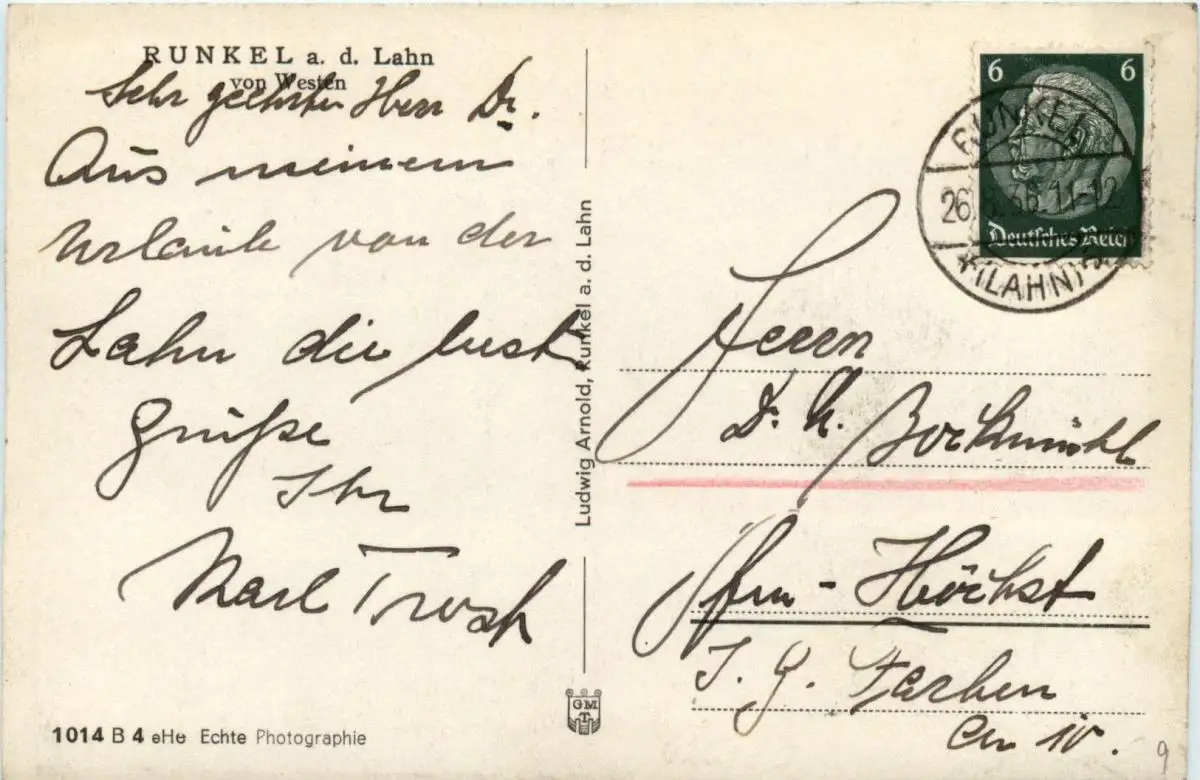 RUNKEL a. d. Lahn
von Westen
Sehr geehrter Herr Dr.
Aus meinem
Urlaub von der
Lahn die best
Grüße
Ihr
Karl
Ludwig Arnold, Runkel a. d. Lahn
GMT
1014 B 4 eHe Echte Photographie
6 6
Deutsches Reich
RUNKEL
26. 11-12
(LAHN)
Herrn
Dr. Bockmühl
Ffm - Höchst
I. G. Farben
9